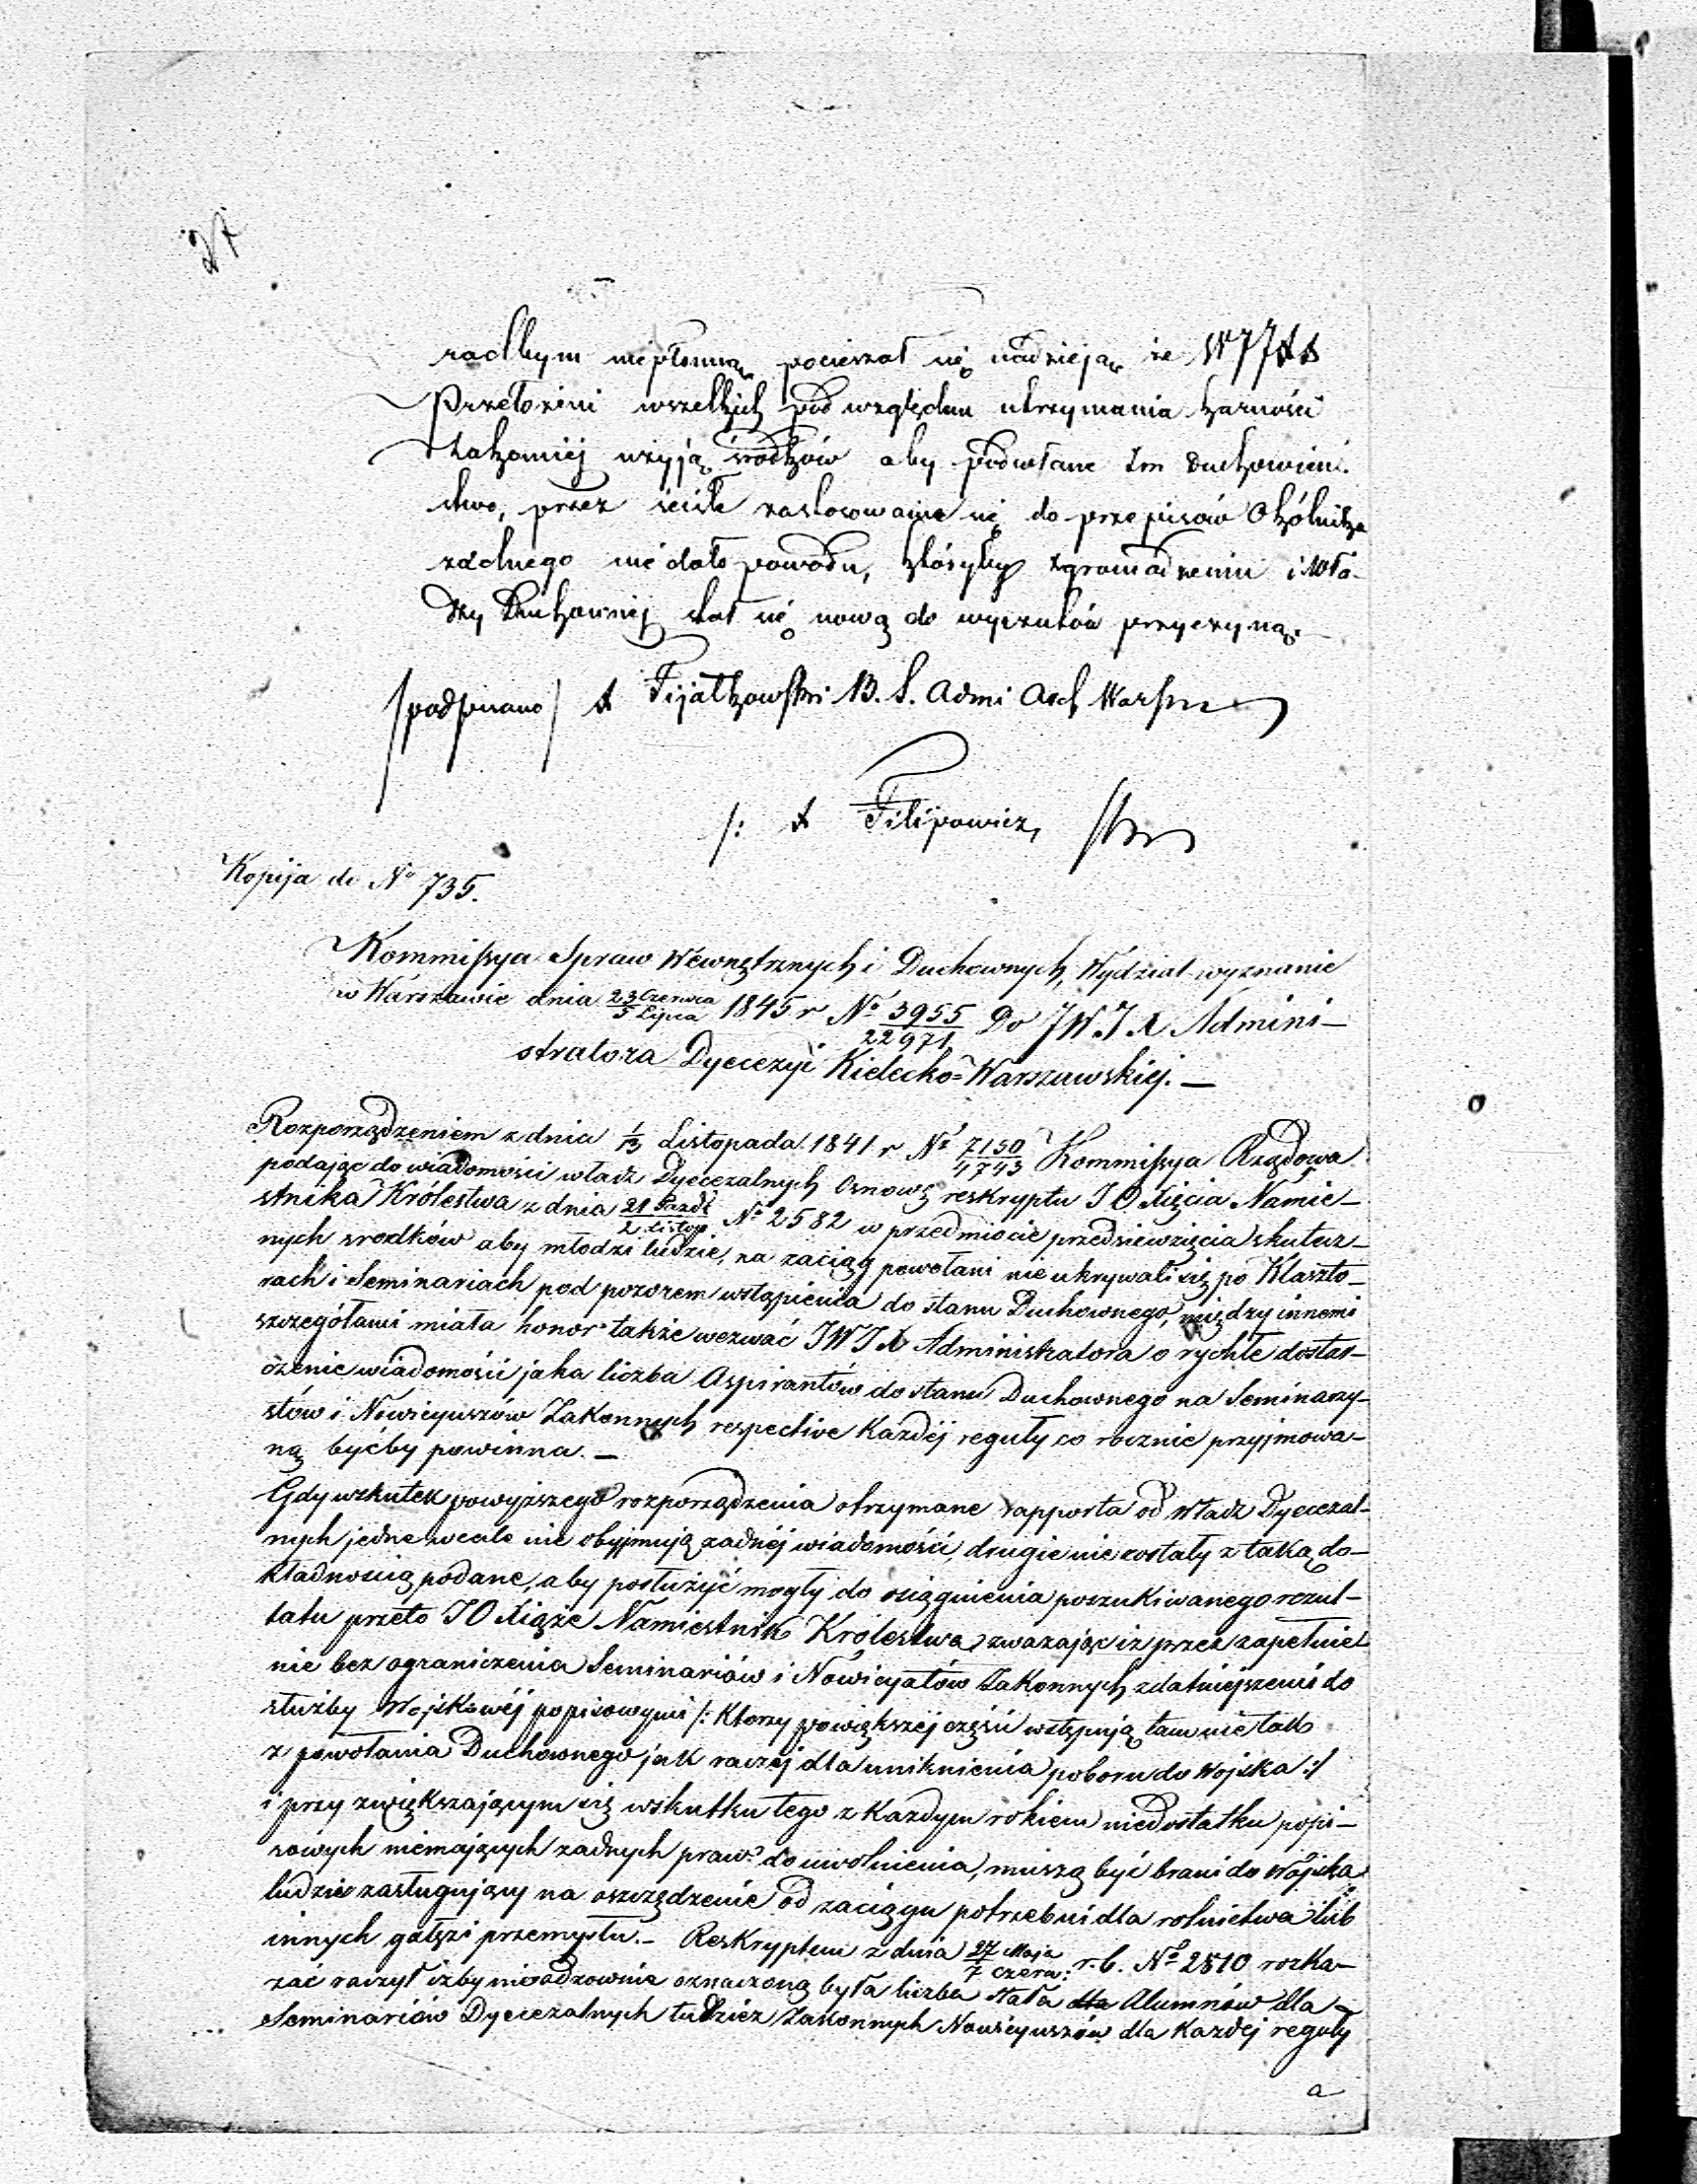 27
radbym niepłonną pocieszał się nadzieją że W JJXX
Przełożeni wszelkich pod względem utrzymania karności
Zakonnéj użyją środków aby podwłane Im Duchowień-
stwo, przez ścisłe zastosowanie się do przepisów Okólnika
żadnego nie dało powodu, któryby Zgromadzeniu i Wła-
dzy Duchownéj stał się nową do wyrzutów przyczyną.
/podpisano/ X Fijałkowski B. S. Admi Arch Warsz
/: X Filipowicz,
Kopija do No 735.
Kommissya Spraw Wewnętrznych i Duchownych, Wydział wyznanie
w Warszawie dnia 23 Czerwca / 5 Lipca 1845 r No 3955/22971 Do JW.JX Admini-
stratora Dyecezyi Kielecko=Warszawskiéj. —
Rozporządzeniem z dnia 1/13 Listopada 1841 r No 7150/4743 Kommissya Rządowa
podając do wiadomości władz Dyecezalnych Osnowę reskryptu JO Xięcia Namie-
stnika Królestwa z dnia 21 Pazdź / 2 Listop No 2582 w przedmiocie przedsiewzięcia skutecz-
nych srodków aby młodzi ludzie, na zaciąg powołani nie ukrywali się po Klaszto-
rach i Seminariach pod pozorem wstąpienia do stanu Duchownego, między innemi
szczegółami miała honor także wezwać JWJX Administratora o rychłe dostar-
czenie wiadomości jaka liczba Aspirantów do stanu Duchownego na Seminarzy-
stów i Nowicyuszów Zakonnych respective Każdéj reguły co rocznie przyjmowa-
ną byćby powinna. —
Gdy wskutek powyższego rozporządzenia otrzymane rapporta od Władz Dyecezal-
nych jedne wcale nie obyjmują żadnéj wiadomości, drugie nie zostały z taką do-
kładnością podane, aby posłużyć mogły do osiągnienia poszukiwanego rezul-
tatu przeto JO Xiąże Namiestnik Królestwa zważając iż przez zapełnie-
nie bez ograniczenia Seminariów i Nowicyatów Zakonnych zdatniejszemi do
służby Wojskowéj popisowymi /: Ktorzy powiększéj części wstępują tam nie tak
z powołania Duchownego jak raczéj dla uniknienia poboru do Wojska :/
i przy zwiększającym się wskutku tego z Każdym rokiem niedostatku popi-
sowych niemających żadnych praw do uwolnienia, muszą być brani do Wojska
ludzie zasługujący na oszczędzenie od zaciągu potrzebni dla rolnictwa lub
innych gałęzi przemysłu. — Reskryptem z dnia 27 Maja / 7 Czerw: r.b. No 2510 rozka-
zać raczył iżby nieodzownie oznaczoną była liczba stała dla Alumnów dla
Seminariów Dyecezalnych tudzież Zakonnych Nowicyuszów dla Każdej reguły
a